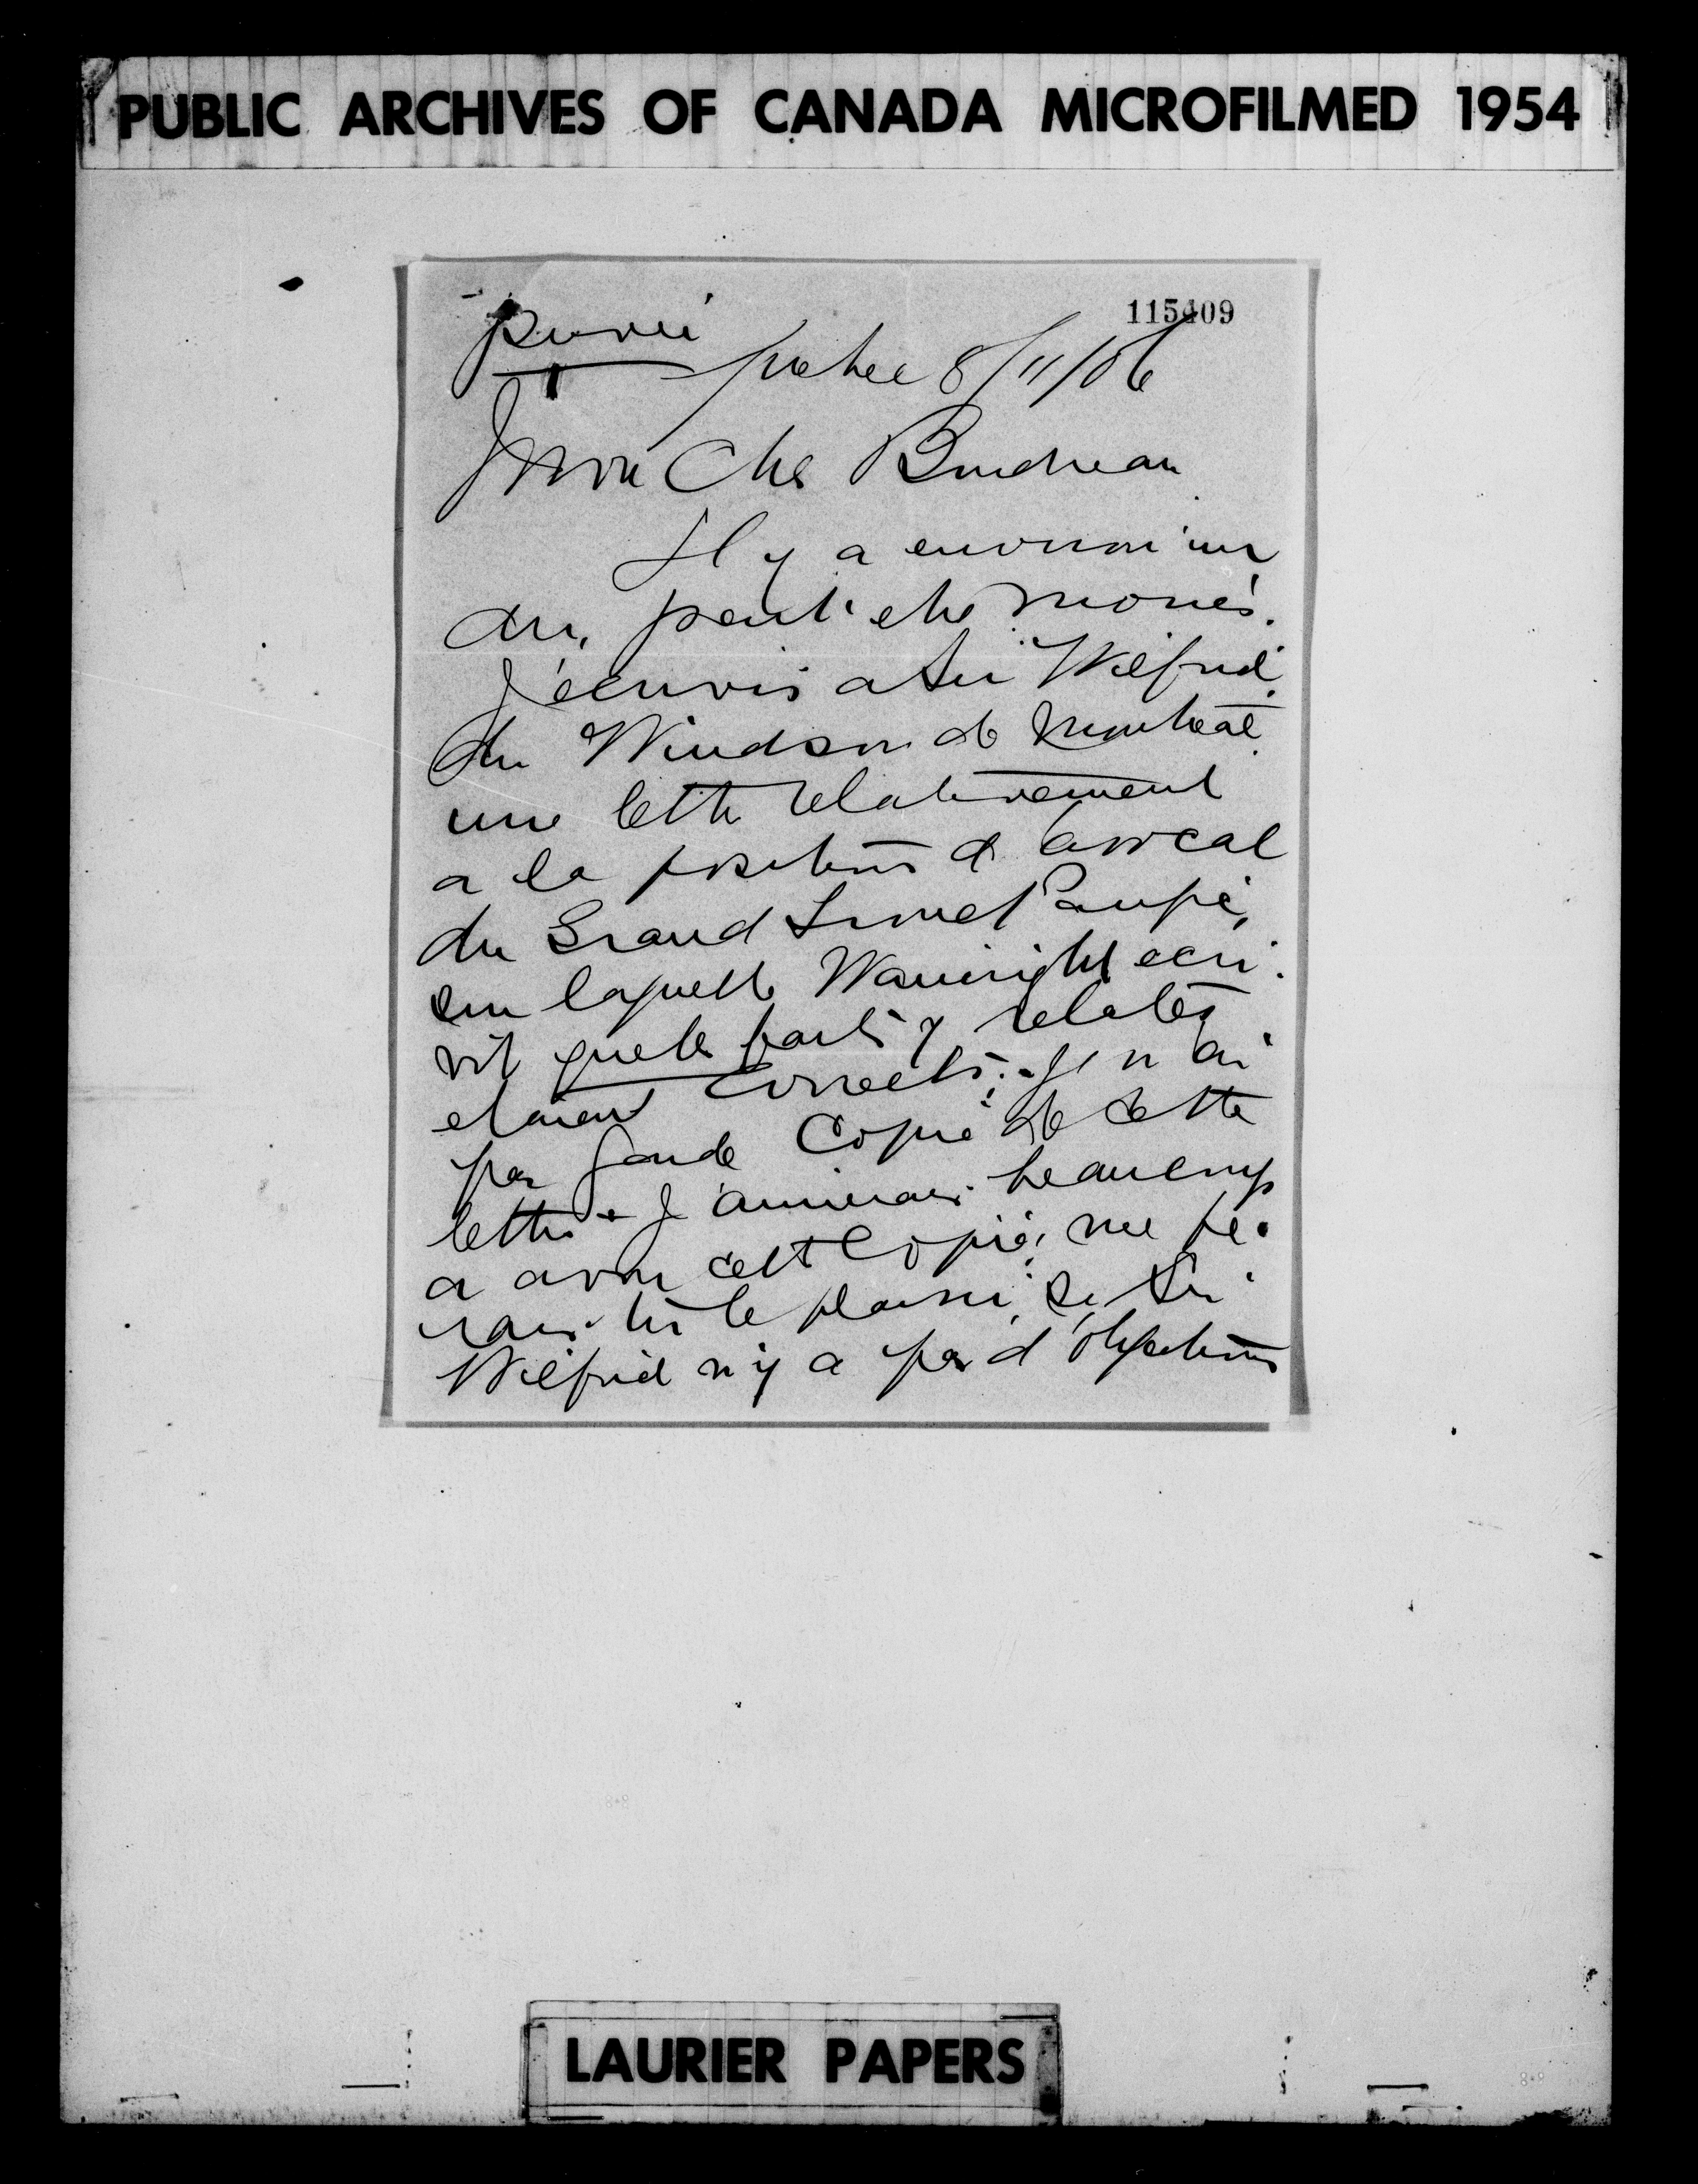 PUBLIC ARCHIVES OF CANADA MICROFILMED 1954
115409
Privée
Quebec 8/11/06
Mon Cher Boudreau
Il y a environ un
an, peut être moins.
J'écrivis a Sir Wilfrid
du Windsor de Montreal
une lettre relativement
a la position d'avocat
du Grand Tronc Pacifie,
sur laquelle Wainwright écri-
vit que les faits y relatés
etaient corrects. Je n'ai
pas gardé Copie de cette
lettre & J'aimerais beaucoup
a avoir cette Copie, me fe-
rais-tu le plaisir, Si Sir
Wilfrid n'y a pas d'objections
LAURIER PAPERS